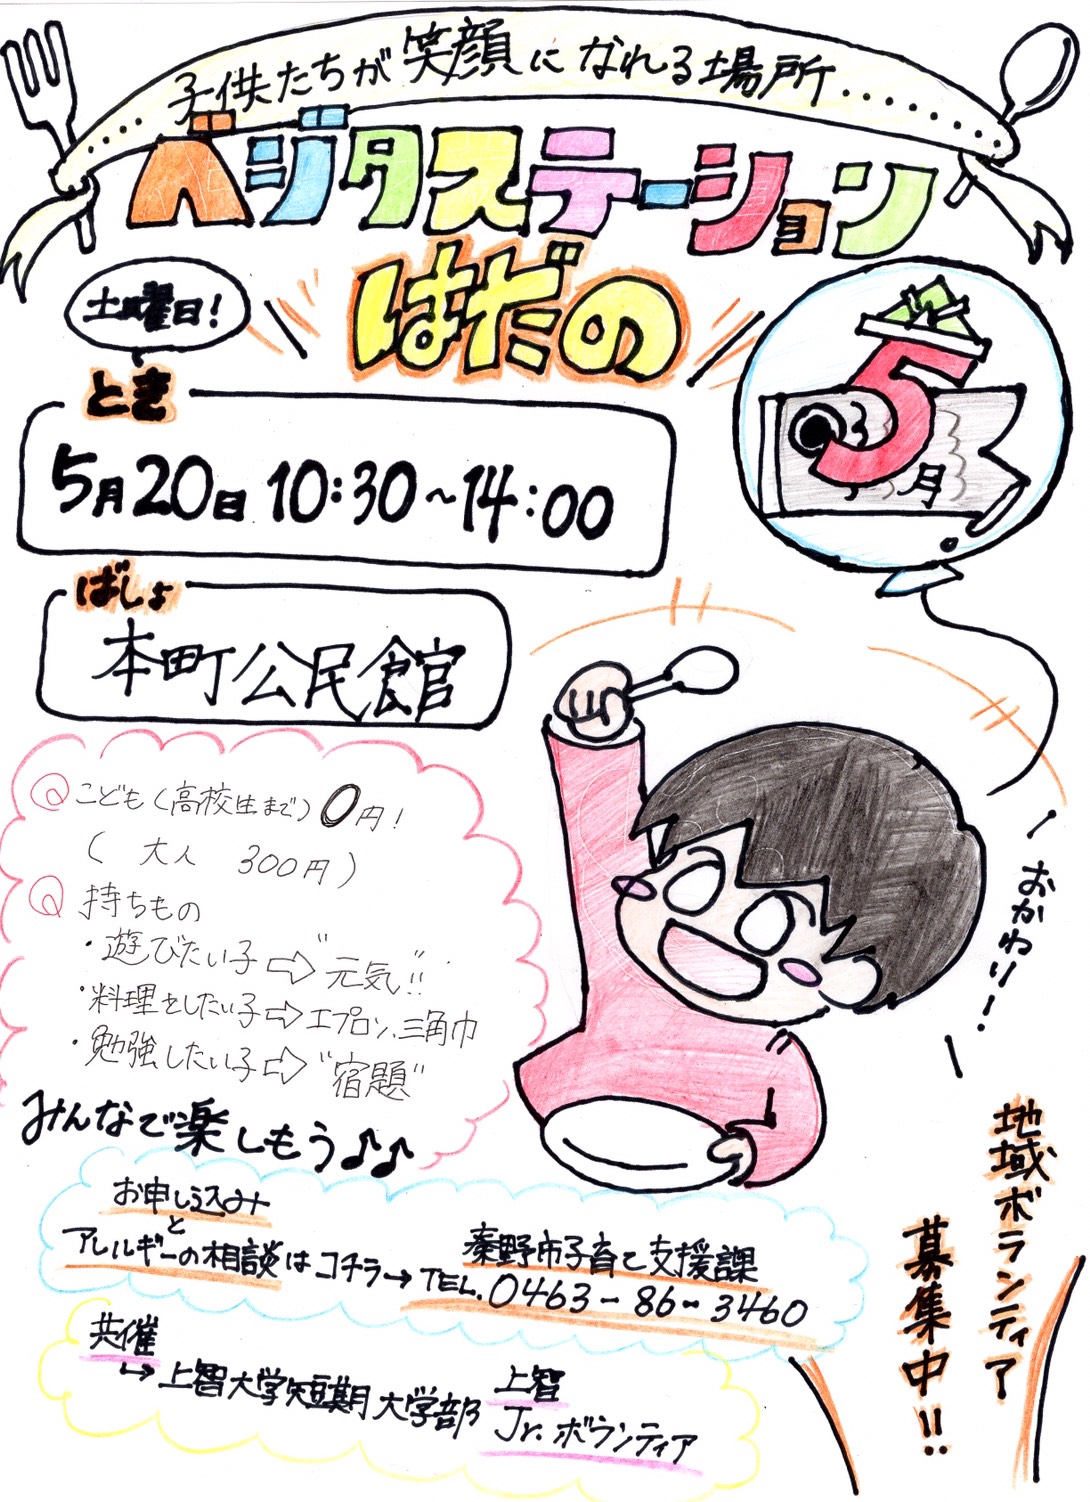 子供たちが笑顔になれる場所.....
ベジタステーション
はだの
土曜日!
5月
とき
5月20日 10:30~14:00
ばしょ
本町公民館
Q こども(高校生まで)0円!
(大人 300円)
Q 持ちもの
・遊びたい子⇨"元気!!"
・料理をしたい子⇨エプロン、三角巾
・勉強したい子⇨"宿題"
みんなで楽しもう♪♪
おかわりー!
地域ボランティア
募集中!!
お申し込み
と
アレルギーの相談はコチラ→
秦野市子育て支援課
TEL.0463-86-3460
共催
↳上智大学短期大学部
上智
Jr.ボランティア